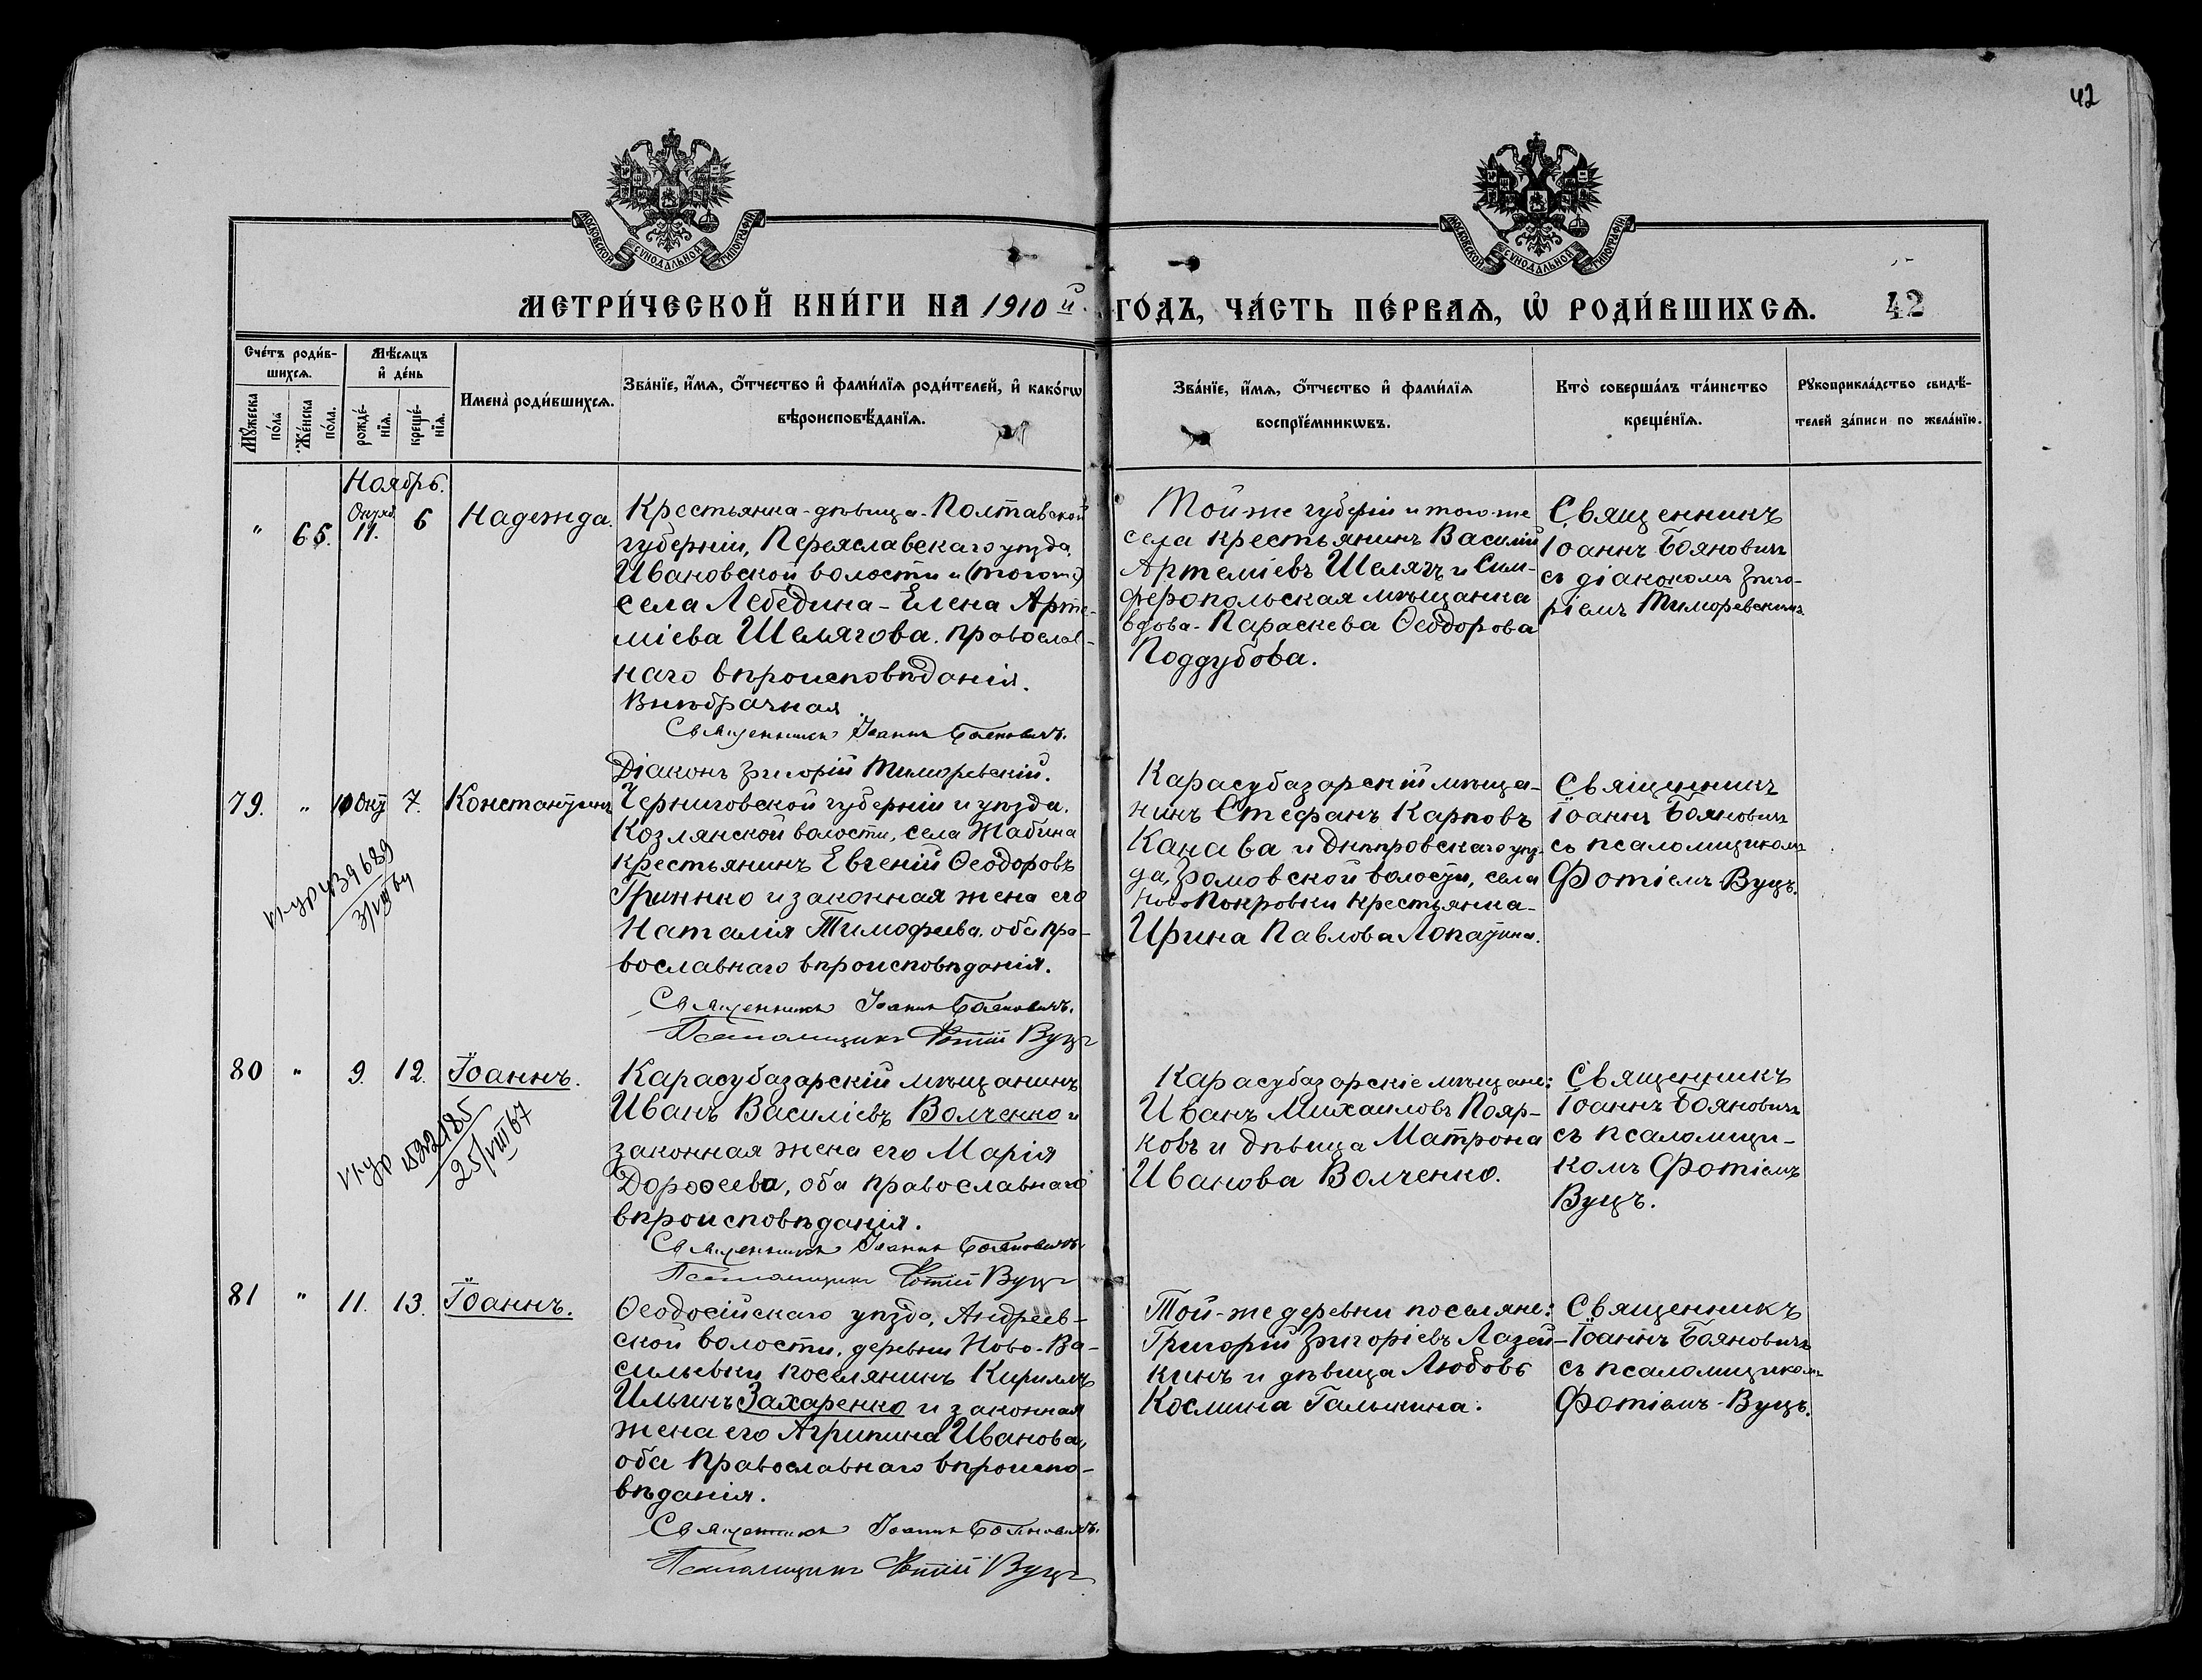 42
МОСКОВСКОЙ СУНОДАЛЬНОЙ ТИПОГРАФІИ
МОСКОВСКОЙ СУНОДАЛЬНОЙ ТИПОГРАФІИ
МЕТРИ́ЧЕСКОЙ КНИ́ГИ НА 1910 й ГО́ДЪ, ЧА́СТЬ ПЕ́РВАѦ, Ѡ҆ РОДИ́ВШИХСѦ. 42
Сче́тъ роди́в-
шихсѧ.
Мꙋ́жеска
по́ла
Же́нска
по́ла.
Мѣ́сѧцъ
и҆ де́нь
рожде́-
нїѧ.
креще́-
нїѧ.
Имена̀ роди́вшихсѧ.
Зва́нїе, и҆́мѧ, ѻ҆́тчество и҆ фами́лїѧ роди́телей, и҆ како́гѡ
вѣроисповѣ́данїѧ.
Зва́нїе, и҆́мѧ, ѻ҆́тчество и҆ фами́лїѧ
воспрїе́мникѡвъ.
Кто̀ соверша́лъ та́инство
креще́нїѧ.
Рꙋкоприкла́дство свидѣ́-
телей за́писи по жела́нїю.
Ноябрь.
" 65. Октяб. 11. 6 Надежда.
Крестьянка-дѣвица Полтавской
губерніи, Переяславскаго уѣзда,
Ивановской волости и (того-же)
села Лебедина - Елена Арте-
міева Шелягова. Православ-
наго вѣроисповѣданія.
Внѣбрачная
Священникъ Іоаннъ Бояновичъ.
Діаконъ Григорій Тиморевскій.
Той же губерніи и того-же
села крестьянинъ Василій
Артеміевъ Шелягъ и Сим-
феропольская мѣщанка
вдова - Параскева Ѳеодорова
Поддубова.
Священникъ
Іоаннъ Бояновичъ
съ діакономъ Григо-
ріемъ Тиморевскимъ
79. " 10 Окт 7. Константинъ
Черниговской губерніи и уѣзда,
Козлянской волости, села Жабина
крестьянинъ Евгеній Ѳеодоровъ
Гринько и законная жена его
Наталія Тимофеева, оба пра-
вославнаго вѣроисповѣданія.
Священникъ Іоаннъ Бояновичъ.
Псаломщикъ Фотій Вуцъ
Карасубазарскій мѣща-
нинъ Стефанъ Карповъ
Канава и Днѣпровскаго уѣз-
да, Громовской волости, села
Ново Покровки крестьянка
Ирина Павлова Лопатина.
Священникъ
Іоаннъ Бояновичъ
съ псаломщикомъ
Фотіемъ Вуцъ.
439689
80 " 9. 12. Іоаннъ.
Карасубазарскій мѣщанинъ
Иванъ Василіевъ Волченко и
законная жена его Марія
Дороѳеева, оба православнаго
вѣроисповѣданія.
Священникъ Іоаннъ Бояновичъ.
Псаломщикъ Фотій Вуцъ
Карасубазарскіе мѣщане:
Иванъ Михаиловъ Пояр-
ковъ и дѣвица Матрона
Иванова Волченко.
Священникъ
Іоаннъ Бояновичъ
съ псаломщи-
комъ Фотіемъ
Вуцъ.
25/VIII 67
81 " 11. 13. Іоаннъ.
Ѳеодосійскаго уѣзда, Андреев-
ской волости, деревни Ново-Ва-
сильевки поселянинъ Кириллъ
Ильинъ Захаренко и законная
жена его Агрипина Иванова,
оба Православнаго вѣроиспо-
вѣданія.
Священникъ Іоаннъ Бояновичъ.
Псаломщикъ Фотій Вуцъ
Той-же деревни поселяне:
Григорій Григоріевъ Лазей-
кинъ и дѣвица Любовь
Космина Галькина.
Священникъ
Іоаннъ Бояновичъ
съ псаломщикомъ
Фотіемъ-Вуцъ.